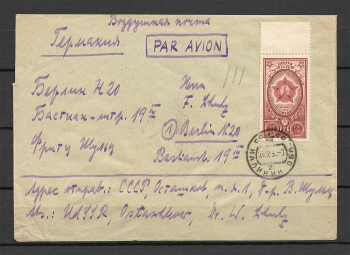 Воздушная почта
Германия
PAR AVION
Берлин N 20
Bастиан-штр. 19
Фритц Шульц
Herrn
F. Schulz
① Berlin N20
Bastianstr. 19
Адрес отправ.: СССР, Осташков, п. я. 1, д-р В. Шульц
Abs.: UdSSR, Ostaschkow, Dr. W. Schulz